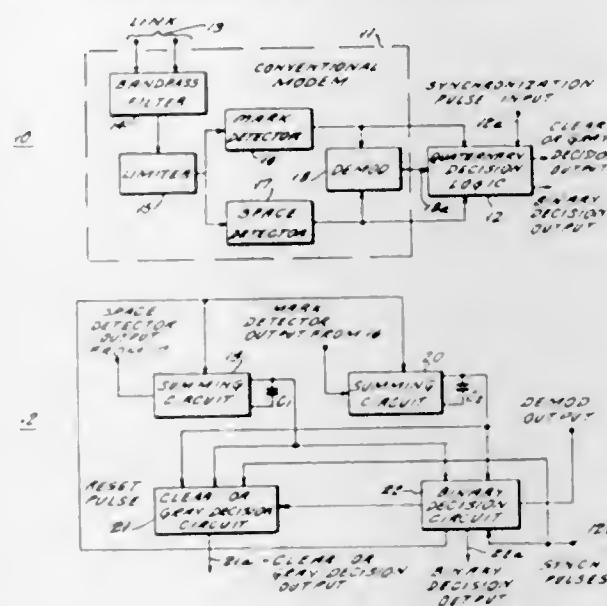 LINK
13
11
BANDPASS
FILTER
14
CONVENTIONAL
MODEM
10
MARK
DETECTOR
16
LIMITER
15
17
SPACE
DETECTOR
18
DEMOD
18a
SYNCHRONIZATION
PULSE INPUT
12a
QUATERNARY
DECISION
LOGIC
12
CLEAR
OR GRAY
DECISION
OUTPUT
BINARY
DECISION
OUTPUT
SPACE
DETECTOR
OUTPUT
FROM 17
MARK
DETECTOR
OUTPUT FROM 16
19
SUMMING
CIRCUIT
C1
20
SUMMING
CIRCUIT
C2
DEMOD
OUTPUT
RESET
PULSE
21
CLEAR OR
GRAY DECISION
CIRCUIT
22
BINARY
DECISION
CIRCUIT
21a
CLEAR OR
GRAY DECISION
OUTPUT
22a
BINARY
DECISION
OUTPUT
SYNCH
PULSES